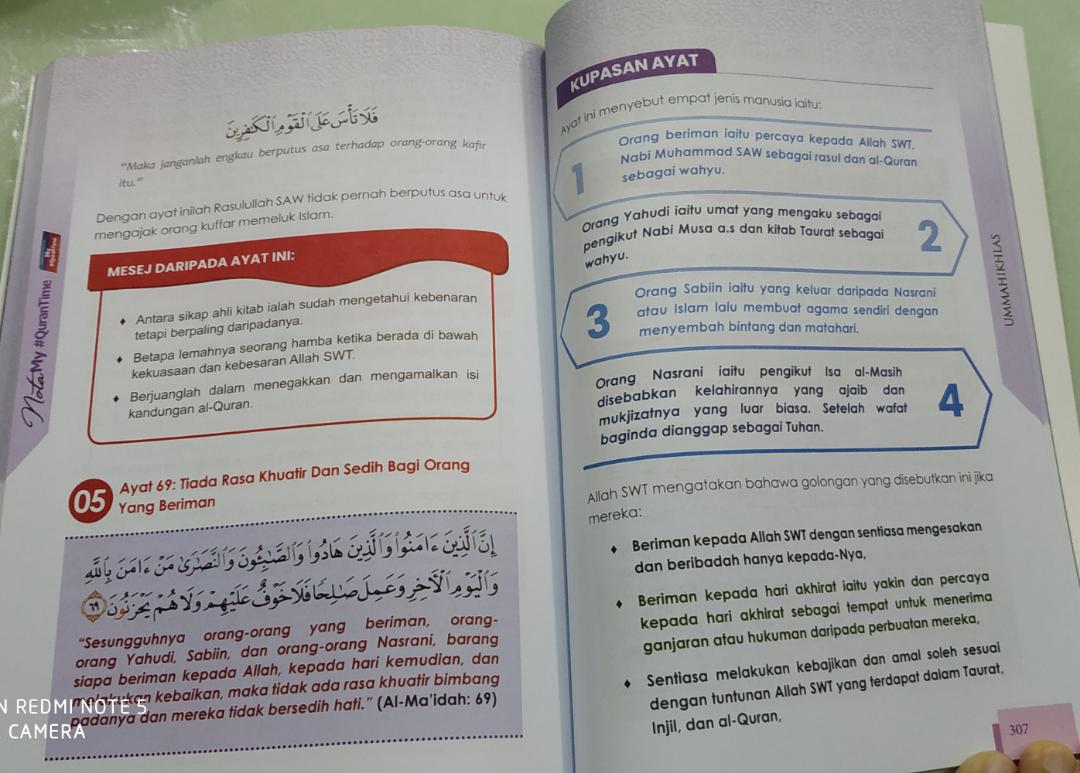 فَلَا تَأْسَ عَلَى الْقَوْمِ الْكَافِرِينَ
"Maka janganlah engkau berputus asa terhadap orang-orang kafir
itu."
Dengan ayat inilah Rasulullah SAW tidak pernah berputus asa untuk
mengajak orang kuffar memeluk Islam.
MESEJ DARIPADA AYAT INI:
♦ Antara sikap ahli kitab ialah sudah mengetahui kebenaran
tetapi berpaling daripadanya.
♦ Betapa lemahnya seorang hamba ketika berada di bawah
kekuasaan dan kebesaran Allah SWT.
♦ Berjuanglah dalam menegakkan dan mengamalkan isi
kandungan al-Quran.
05
Ayat 69: Tiada Rasa Khuatir Dan Sedih Bagi Orang
Yang Beriman
إِنَّ الَّذِينَ ءَامَنُوا وَالَّذِينَ هَادُوا وَالصَّابِئُونَ وَالنَّصَارَىٰ مَنْ ءَامَنَ بِاللَّهِ
وَالْيَوْمِ الْآخِرِ وَعَمِلَ صَالِحًا فَلَا خَوْفٌ عَلَيْهِمْ وَلَا هُمْ يَحْزَنُونَ ٦٩
"Sesungguhnya orang-orang yang beriman, orang-
orang Yahudi, Sabiin, dan orang-orang Nasrani, barang
siapa beriman kepada Allah, kepada hari kemudian, dan
melakukan kebaikan, maka tidak ada rasa khuatir bimbang
padanya dan mereka tidak bersedih hati." (Al-Ma'idah: 69)
Nota My #QuranTime
My #QuranTime
N REDMI NOTE 5
CAMERA
KUPASAN AYAT
Ayat ini menyebut empat jenis manusia iaitu:
1
Orang beriman iaitu percaya kepada Allah SWT,
Nabi Muhammad SAW sebagai rasul dan al-Quran
sebagai wahyu.
Orang Yahudi iaitu umat yang mengaku sebagai
pengikut Nabi Musa a.s dan kitab Taurat sebagai
wahyu.
2
3
Orang Sabiin iaitu yang keluar daripada Nasrani
atau Islam lalu membuat agama sendiri dengan
menyembah bintang dan matahari.
Orang Nasrani iaitu pengikut Isa al-Masih
disebabkan kelahirannya yang ajaib dan
mukjizatnya yang luar biasa. Setelah wafat
baginda dianggap sebagai Tuhan.
4
Allah SWT mengatakan bahawa golongan yang disebutkan ini jika
mereka:
♦ Beriman kepada Allah SWT dengan sentiasa mengesakan
dan beribadah hanya kepada-Nya,
♦ Beriman kepada hari akhirat iaitu yakin dan percaya
kepada hari akhirat sebagai tempat untuk menerima
ganjaran atau hukuman daripada perbuatan mereka,
♦ Sentiasa melakukan kebajikan dan amal soleh sesuai
dengan tuntunan Allah SWT yang terdapat dalam Taurat,
Injil, dan al-Quran,
UMMAHIKHLAS
307